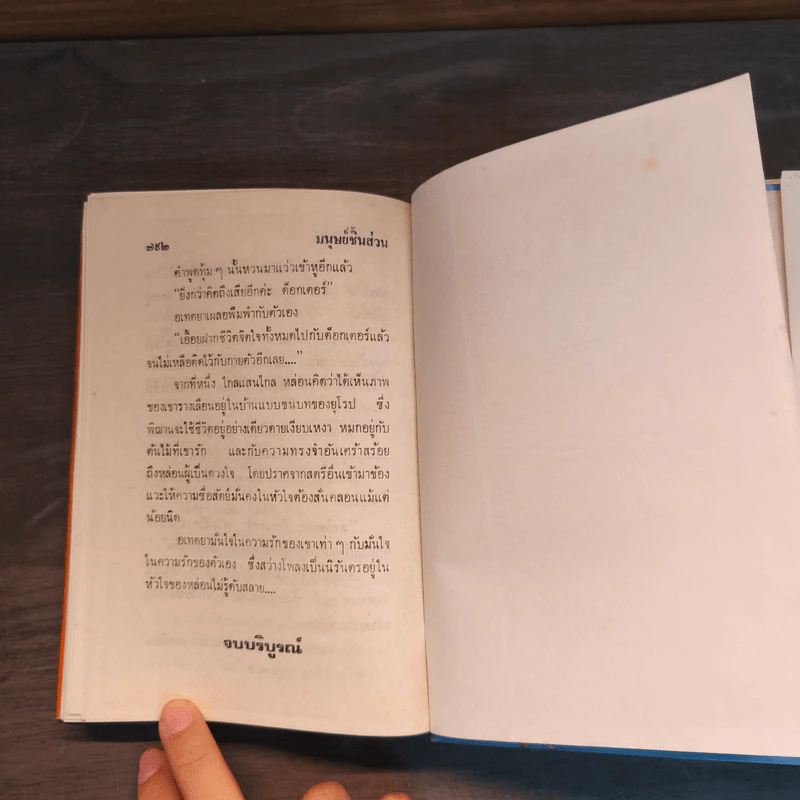 ๗๙๒ มนุษย์ชิ้นส่วน
คำพูดทุ้ม ๆ นั้นหวนมาแว่วเข้าหูอีกแล้ว
“ยิ่งกว่าคิดถึงเสียอีกค่ะ ด็อกเตอร์”
อเทตยาเผลอพึมพำกับตัวเอง
“เอื้อยฝากชีวิตจิตใจทั้งหมดไปกับด็อกเตอร์แล้ว
จนไม่เหลือติดไว้กับกายตัวอีกเลย....”
จากที่หนึ่ง ไกลแสนไกล หล่อนคิดว่าได้เห็นภาพ
ของเขารางเลือนอยู่ในบ้านแบบชนบทของยุโรป ซึ่ง
พิฌานจะใช้ชีวิตอยู่อย่างเดียวดายเงียบเหงา หมกอยู่กับ
ต้นไม้ที่เขารัก และกับความทรงจำอันเศร้าสร้อย
ถึงหล่อนผู้เป็นดวงใจ โดยปราศจากสตรีอื่นเข้ามาข้อง
แวะให้ความซื่อสัตย์มั่นคงในหัวใจต้องสั่นคลอนแม้แต่
น้อยนิด
อเทตยามั่นใจในความรักของเขาเท่า ๆ กับมั่นใจ
ในความรักของตัวเอง ซึ่งสว่างโพลงเป็นนิรันดรอยู่ใน
หัวใจของหล่อนไม่รู้ดับสลาย....
จบบริบูรณ์